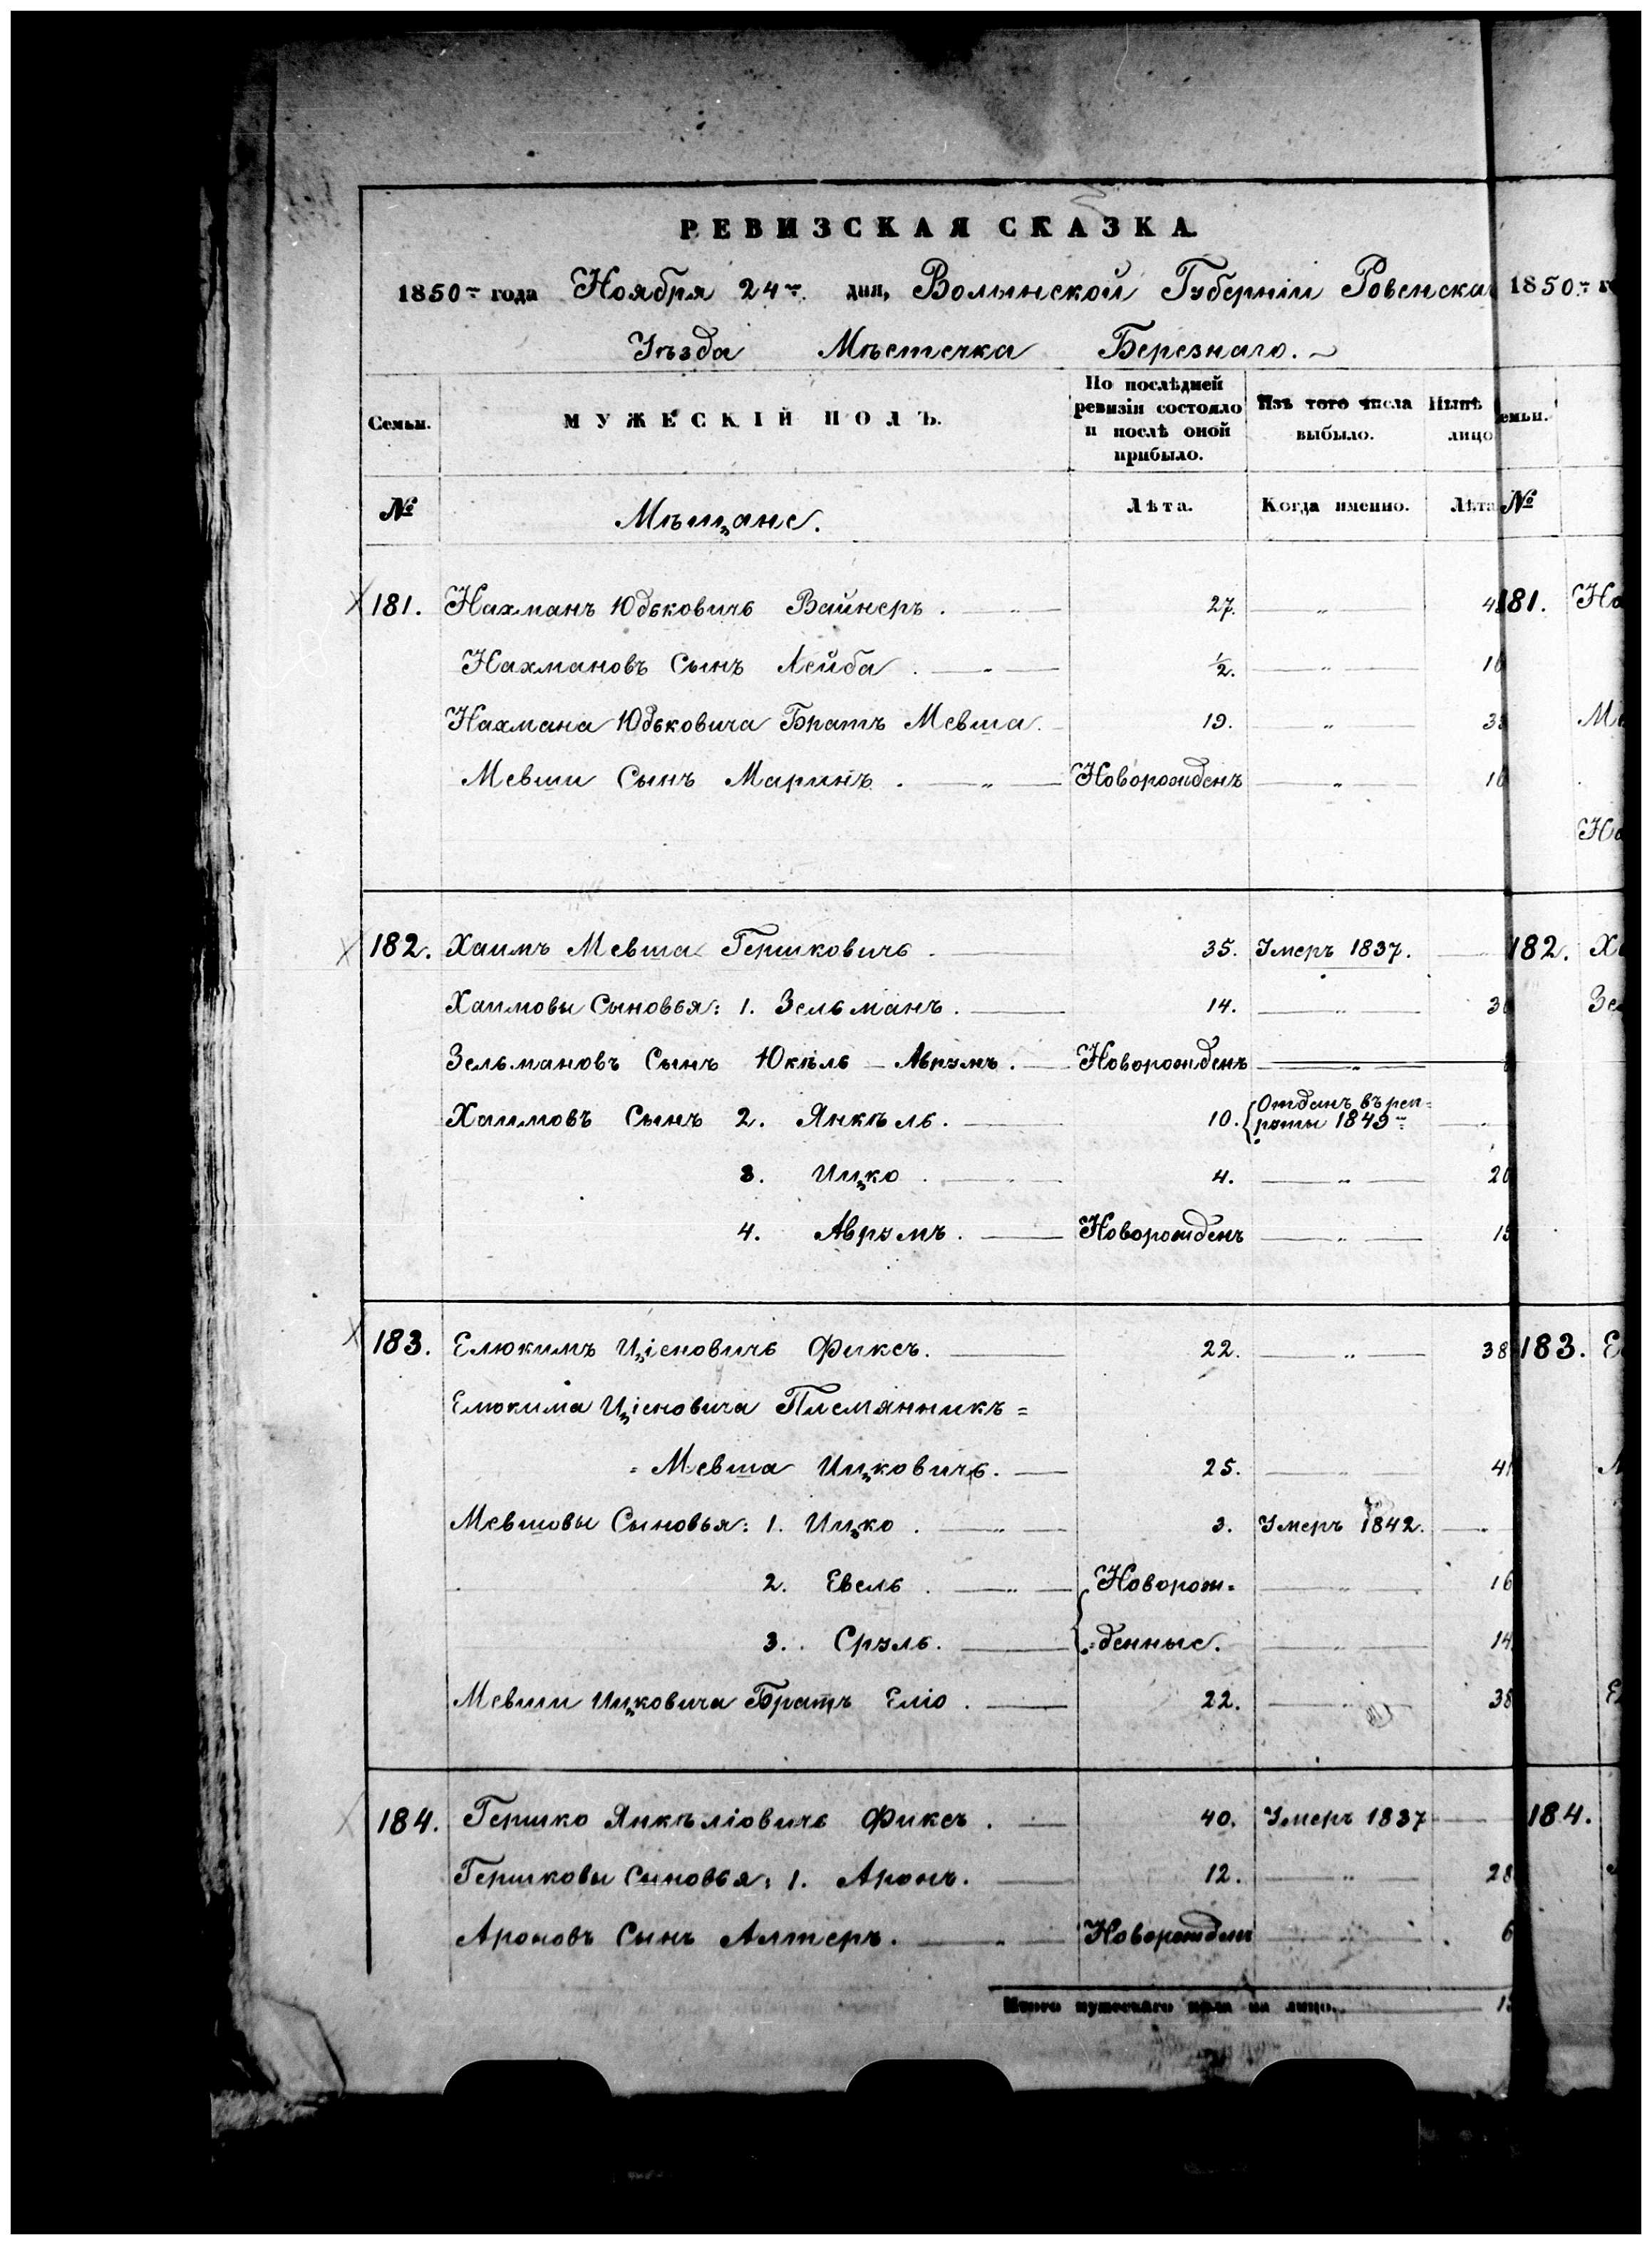 РЕВИЗСКАЯ СКАЗКА.
1850го года Ноября 24го дня, Волынской Губерніи Ровенска
Уѣзда Мѣстечка Березнаго.
Семьи. МУЖЕСКІЙ ПОЛЪ. По послѣдней ревизіи состояло и послѣ оной прибыло. Изъ того числа выбыло. Нынѣ лицо
№ Мѣщане. Лѣта. Когда именно. Лѣта
181. Нахманъ Юдьковичь Вайнеръ. 27. „
Нахмановъ Сынъ Лейба. „ 1/2. „ 16
Нахмана Юдьковича Братъ Мевша. 19. „
Мевши Сынъ Маринъ. „ Новорожденъ „ 16
182. Хаимъ Мевша Гершковичь. 35. Умеръ 1837.
Хаимовы Сыновья: 1. Зельманъ. 14. „ 30
Зельмановъ Сынъ Юкѣль - Аврумъ. Новорожденъ „
Хаимовъ Сынъ 2. Янкѣль. 10. Отданъ въ рек=
руты 1849го
3. Ицко. 4. „ 20
4. Аврумъ. Новорожденъ „ 15
183. Елюкимъ Ціеновичь Фиксъ. 22. „ 38
Елюкима Ціеновича Племянникъ =
= Мевша Ицковичь. 25. „ 41
Мевшовы Сыновья: 1. Ицко. „ 3. Умеръ 1842.
2. Евель. „ Новорож= „ 16
3. Сруль. =денные. „ 14
Мевши Ицковича Братъ Еліо. 22. „ 38
184. Гершко Янкѣліовичь Фиксъ. 40. Умеръ 1837
Гершковы Сыновья: 1. Аронъ. 12. „ 28
Ароновъ Сынъ Алтеръ. „ Новорожден „ 6
Итого мужескаго пола на лицо.
1850го
семьи.
№
181. На
Ме
На
182. Ха
Зел
183. Е
М
Ел
184.